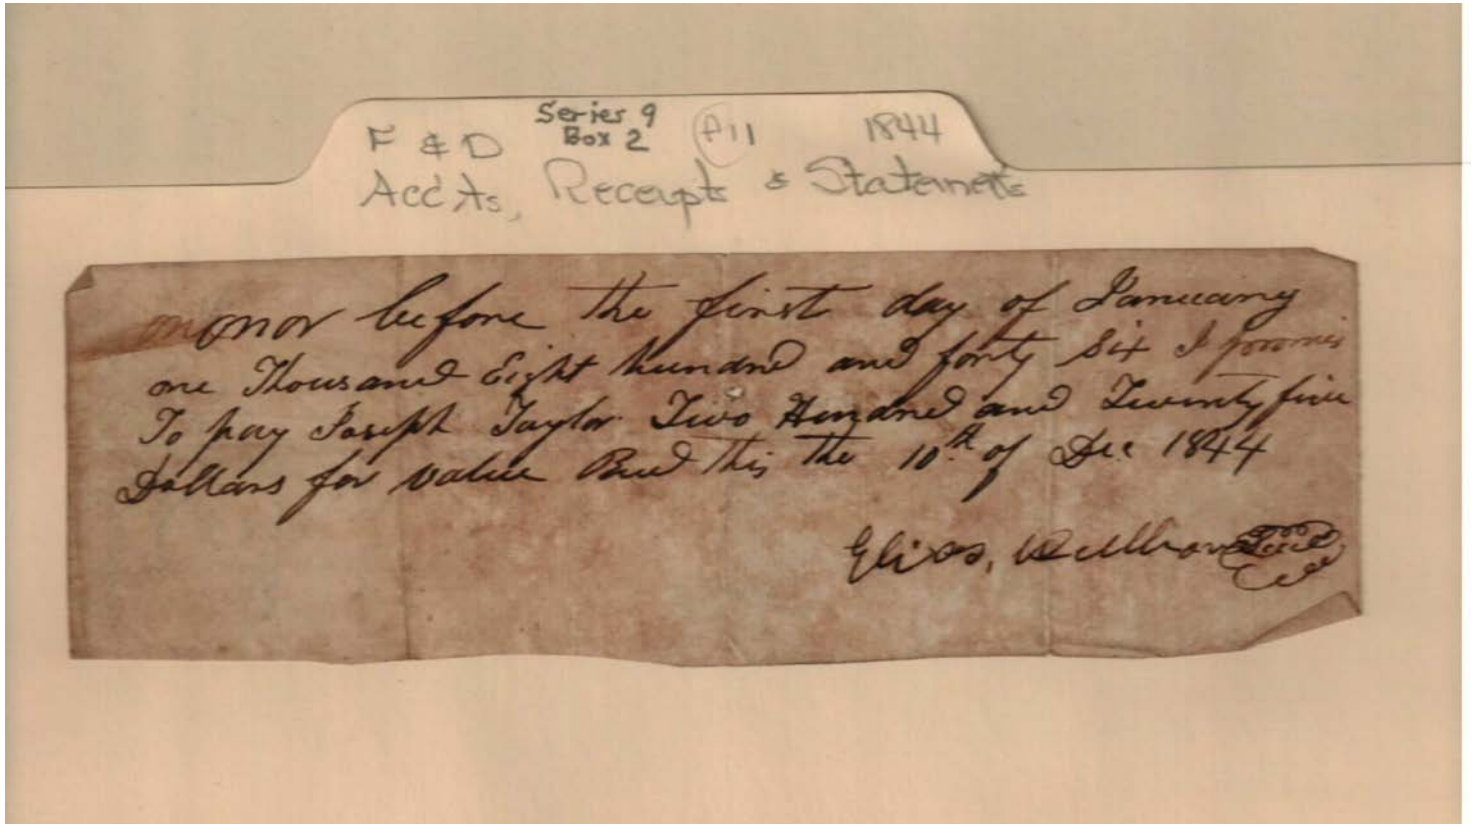 Series 9
F & D Box 2 f11 1844
Acc'ts, Receipts & Statements
on onor before the first day of January
one Thousand Eight hundred and forty Six I promis
To pay Joseph Taylor Two Hundred and Twenty five
Dollars for value Recd This the 10th of Dec 1844
Elias,